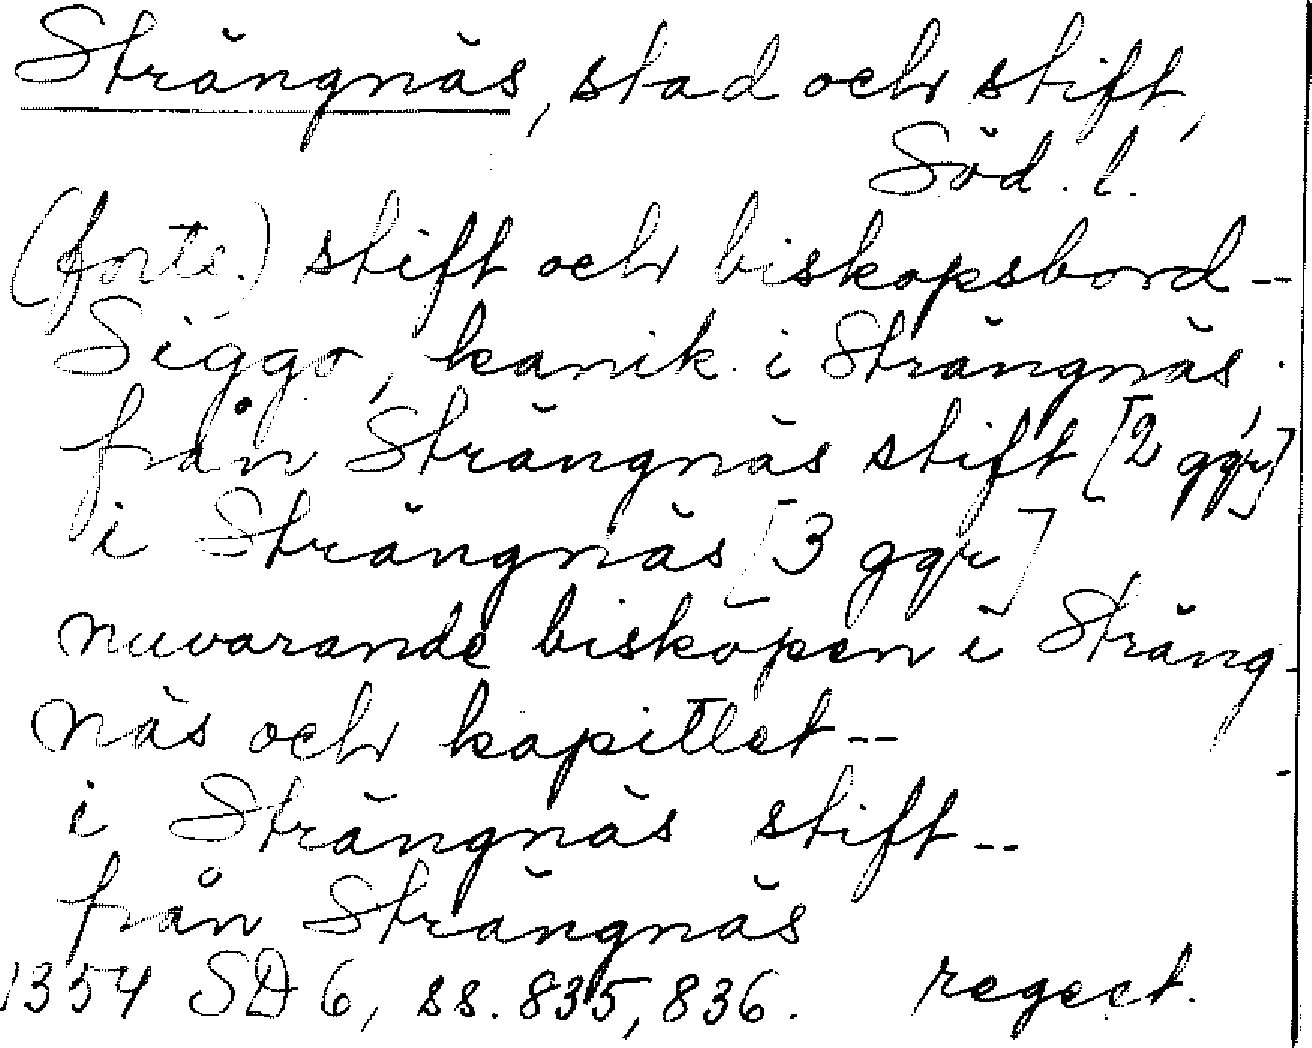 Strängnäs, stad och stift,
Söd. l.
(forts.) stift och biskopsbord --
Siggo, kanik i Strängnäs.
från Strängnäs stift [2 ggr]
i Strängnäs [3 ggr]
nuvarande biskopen i Sträng-
näs och kapitlet --
i Strängnäs stift --
från Strängnäs
1354 SD 6, ss. 835, 836. regest.